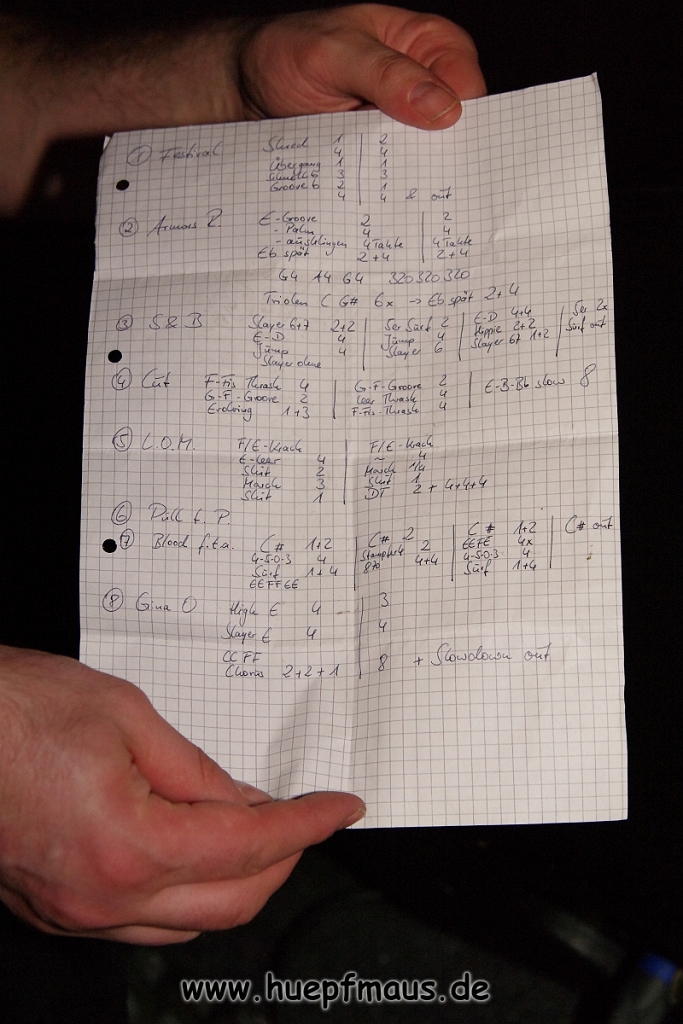 ① Festival Shred 1 | 2
4 | 4
Übergang 1 | 1
3 | 3
Groove 6 2 | 1
4 | 4 & out
② E-Groove 2 | 2
- Palm 4 | 4
- ausklingen 4 Takte | 4 Takte
Eb spät 2+4 | 2+4
G4 A4 G4 320 320 320
Triolen C G# 6x → Eb spät 2+4
③ S & B Slayer 6+7 2+2 | 5er Surf 2 | E-D 4+4 | 5er 2x
E-D 4 | Jump 4 | Hippie 2+2 | Surf out
Jump 4 | Slayer 6 | Slayer 67 1+2
Slayer ohne
④ Cut F-Fis Thrash 4 | G-F-Groove 2 | E-B-Bb slow 8
G-F-Groove 2 | leer Thrash 4
1+3 | F-Fis-Thrash 4
⑤ L.O.M. F/E-Krach | F/E-Krach
E-leer 4 | ~ 4
Shit 2 | March 1/4
March 3 | Shit 1
Shit 1 | DT 2 + 4+4+4
⑥ Pull t. P.
⑦ Blood f.t.a. C# 1+2 | C# 2 | C# 1+2 | C# out
4-5-0-3 4 | 2 | EEFE 4x
Surf 1+4 | 870 4+4 | 4-5-0-3 4
EEFFEE | Surf 1+4
⑧ Gina O High E 4 | 3
Slayer E 4 | 4
CCFF
Chorus 2+2+1 | 8 + Slowdown out
www.huepfmaus.de